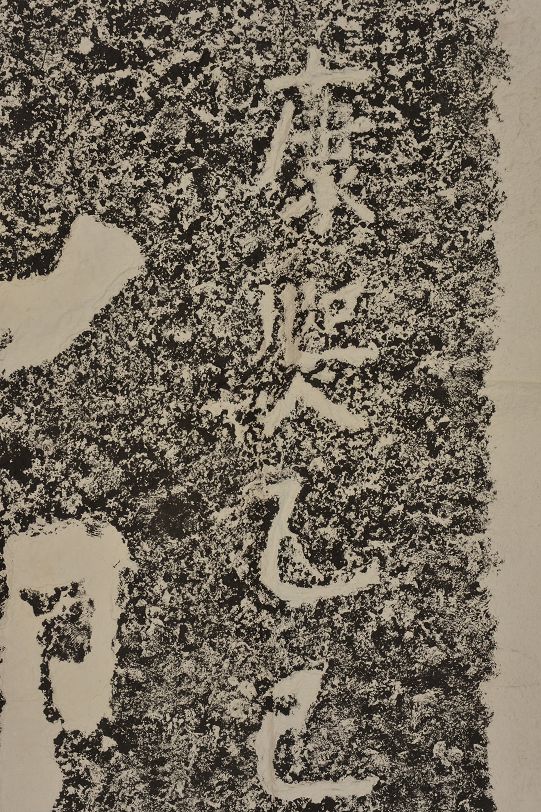 康熙乙巳